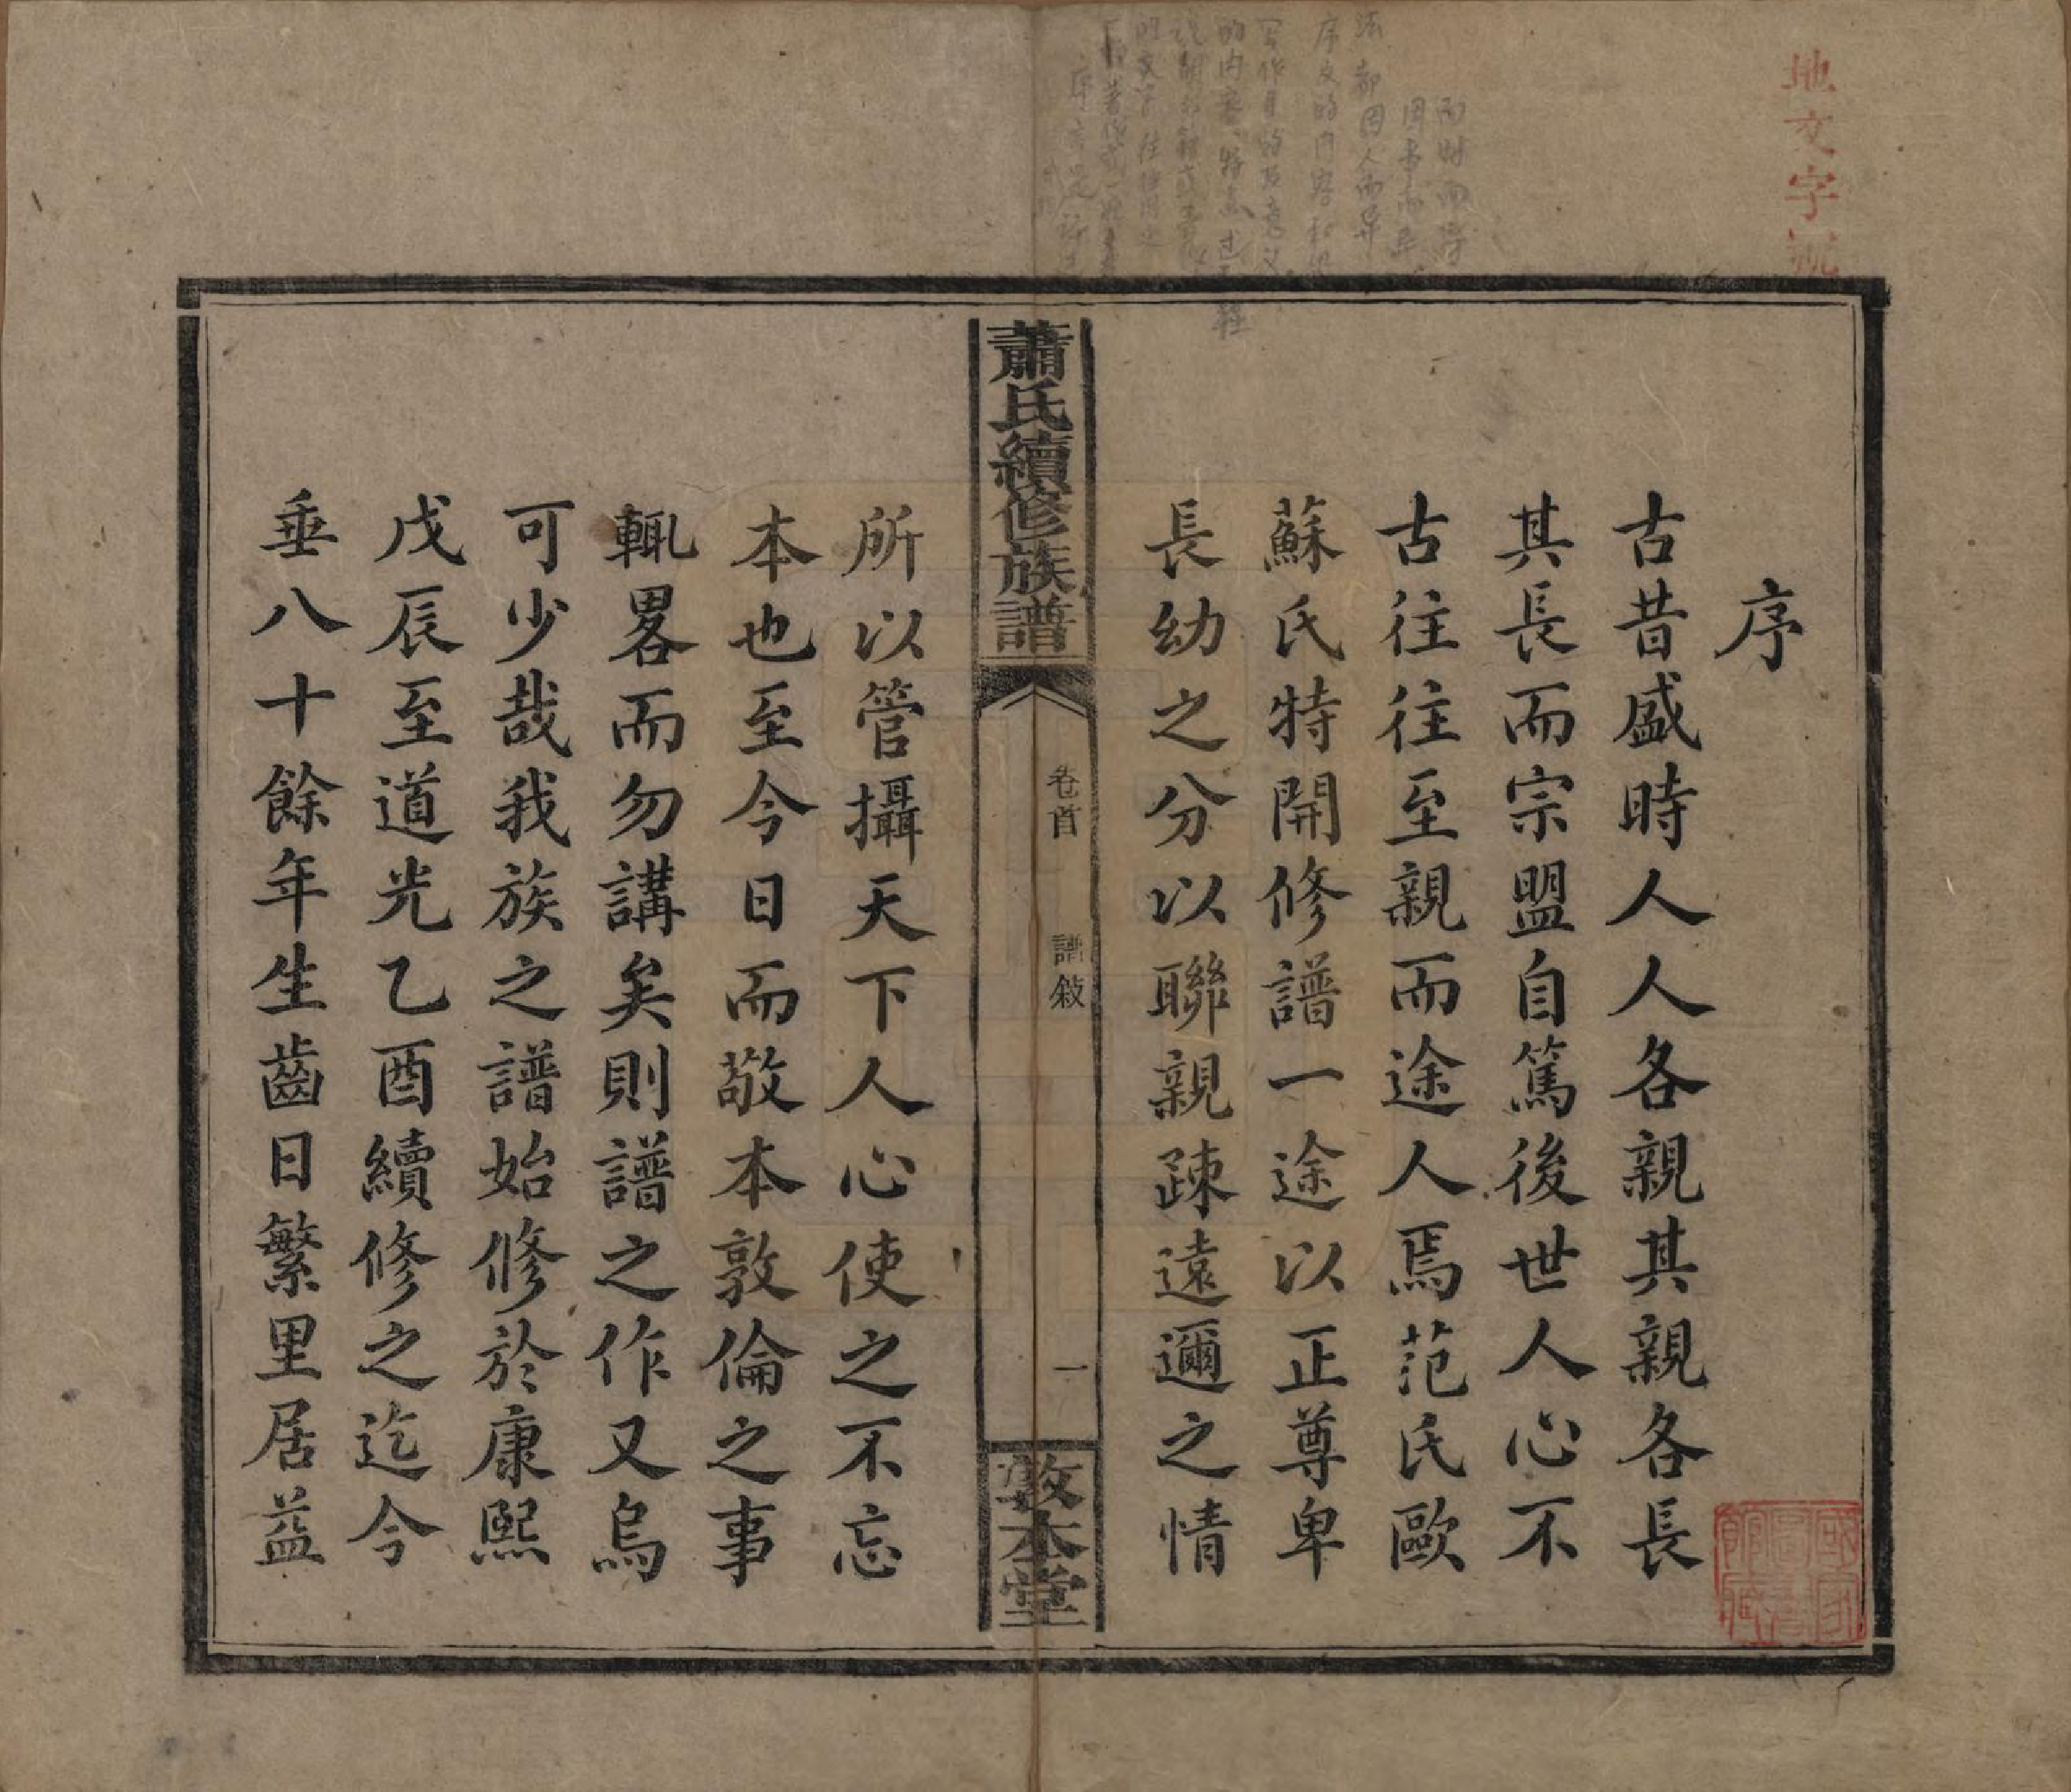 序
古昔盛時人人各親其親各長
其長而宗盟自篤後世人心不
古往往至親而途人焉范氏歐
蘇氏特開修譜一途以正尊卑
長幼之分以聯親疎遠邇之情
蕭氏續修族譜
卷首
譜敘
一
敦本堂
所以管攝天下人心使之不忘
本也至今日而敬本敦倫之事
輒畧而勿講矣則譜之作又烏
可少哉我族之譜始修於康熙
戊辰至道光乙酉續修之迄今
垂八十餘年生齒日繁里居益
地文字
國家圖書館藏